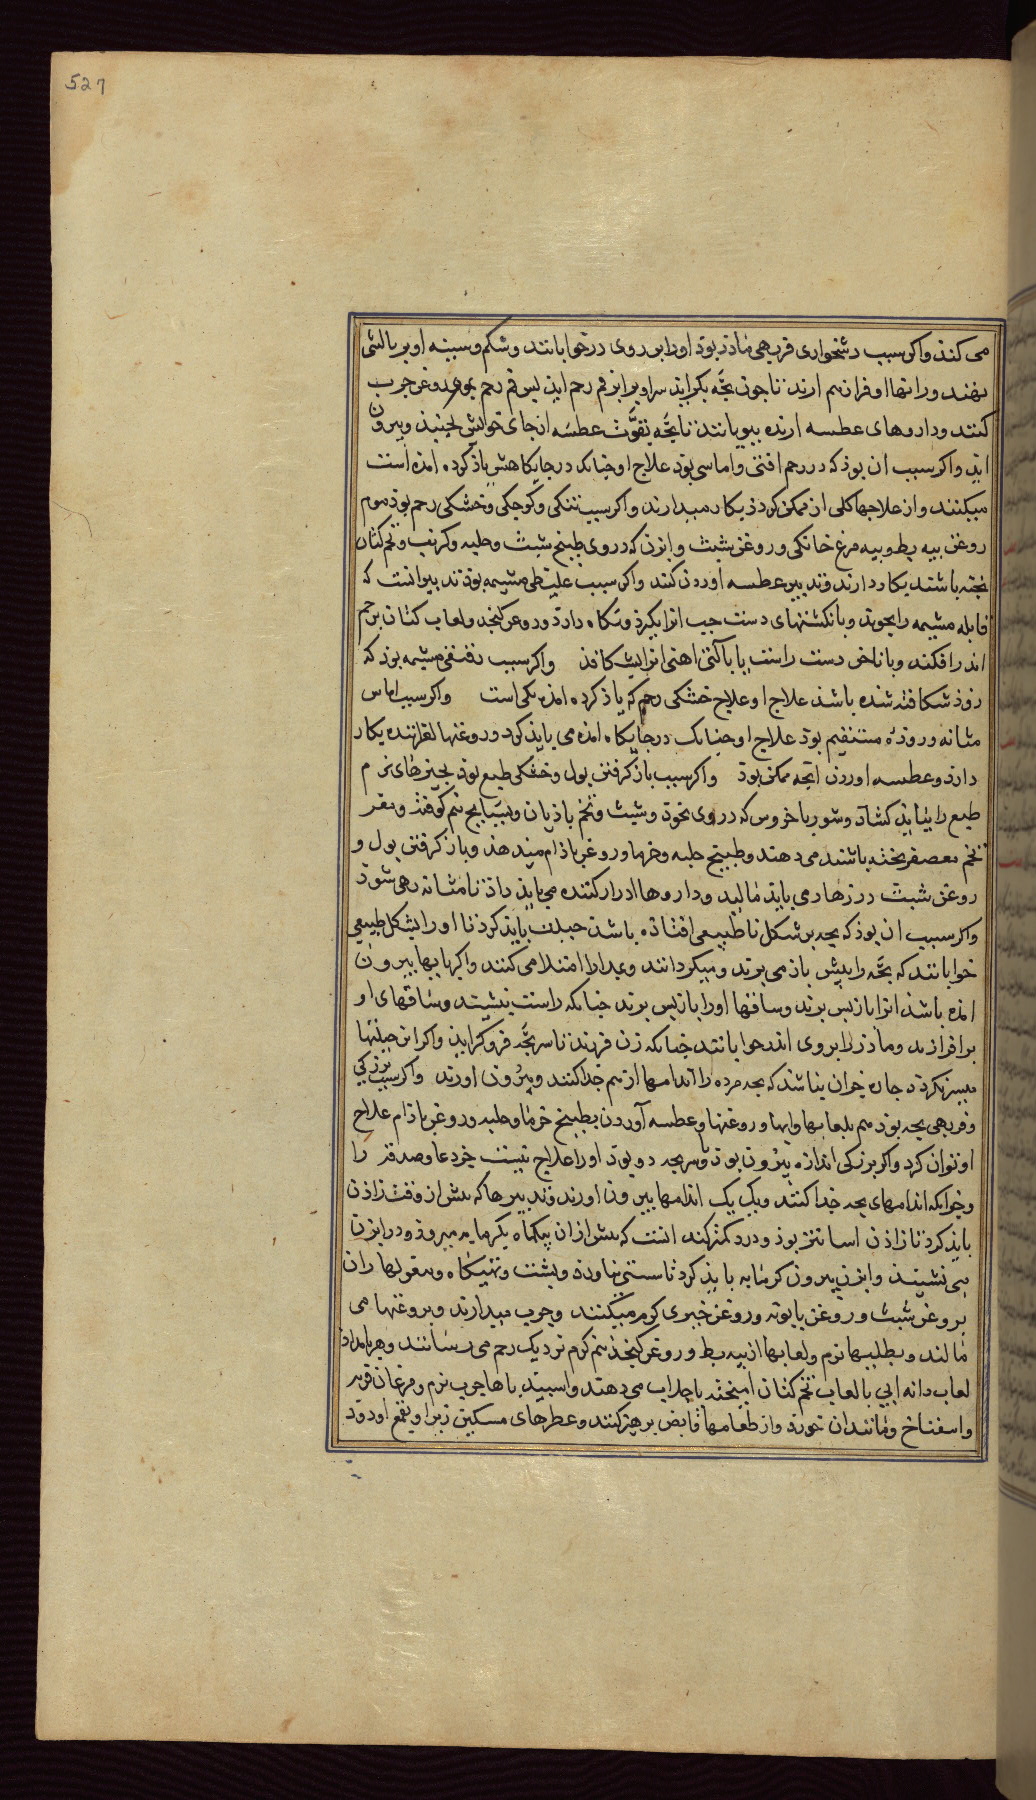 527
می کنذ واکر سبب دشخواری فربهی ماذر بوذ اورا بر روی درخوابانند وشکم وسینه او بر بالشی
نهند ورانها او فرازهم ارند تا جون بجّه بکراید سر او برابر فم رحم اید بس فم رحم بموم روغن جرب
کنند وداروهای عطسه ارنده ببویانند تا بجّه بقوّت عطسه ازجای خویش بجنبذ وبیرون
اید واکر سبب ان بوذ که در رحم افتی واماسی بوذ علاج او جنانک در جایکاهش یاذ کرده امذه است
میکنند واز علاجها کلی انج ممکن کردذ بکار میدارند واکر سبب تنکی وکوجکی وخشکی رحم بوذ موم
روغن بیه بط وبیه مرغ خانکی وروغن شبت وابزن که در وی طبیخ شبت وحلبه وکرنب وتخم کتان
بخته باشند بکار دارند وتدبیر عطسه اوردن کنند واکر سبب غلیظی مشیمه بوذ تدبیر انست که
قابله مشیمه را بجوید وبانکشتهای دست جب انرا بکیرذ ونکاه دارد وروغن کنجد ولعاب کتان برحم
اندر افکند وبناخن دست راست یا بآلتی اهنی انرا بشکافذ واکر سبب تنکی مشیمه بوذ که
زوذ شکافته شده باشذ علاج او علاج خشکی رحم که یاذ کرده امذ نیکی است واکر سبب اماس
مثانه وروده مستقیم بوذ علاج او جنانک درجایکاه امذه می بایذ کرد وروغنها لغزاننده بکار
دارد وعطسه اوردن انجه ممکن بوذ واکر سبب باز کرفتن بول وخشکی طبع بوذ بجیزهای نرم
طبع را بباید کشاد وشوربا خروس که در وی نخوذ وشبت وتخم باذیان وبسبایج نیم کوفته ومغز
تخم معصفر بخته باشند می دهند وطبیخ حلبه وخرما وروغن باذام میدهند وباز کرفتن بول و
روغن شبت در زهار می باید مالید وداروها ادرار کننده می باید داذ تا مثانه رهی شوذ
واکر سبب ان بوذ که بجه بر شکل نا طبیعی افتاذه باشذ حیلت باید کرد تا اورا بشکل طبیعی
خوابانند که بجّه را بیش باز می برند ومیکردانند وبمدارا امتلا می کنند واکر بایها بیرون
امذه باشذ انرا باز بس برند وساقها اورا باز بس برند جنانکه راست نیشیند وساقهای او
بر افرازند وماذر را بر وی اندر خوابانند جنانکه زن فرزند تا سر بجّه فرو کراید واکر این حیلتها
میسر نکردد جاره جزان نباشذ که بجه مرده را اندامها ازهم جذا کنند وبیرون اورند واکر سبب بزرکی
وفربهی بجه بوذ هم بلعابها وابها وروغنها وعطسه آوردن بطبیخ خرما وحلبه وروغن باذام علاج
او توان کرد واکر بزرکی اندازه بیرون بوذ وسر بجه دو بوذ اورا علاج نیست جز دعا وصدقه را
وجزانکه اندامهای بجه جذا کنند ویک یک اندامها بیرون اورند وتدبیرها که بیش از وقت زاذن
باید کرد تا زاذن اسانتر بوذ ودرد کمتر کند انست که بیش از ان بیکماه بکرمابه میروذ ودر ابزن
می نشیند وابزن بیرون کرمابه باید کرد تا سستی نیاورد وبشت وتهیکاه وبیغولها ران
بروغن شبت وروغن بابونه وروغن خیری کرم میکنند وجرب میدارند وبروغنها می
مالند وبطلیها نرم ولعابها از بیه بط وروغن کنجذ نیم کرم نزدیک رحم می رسانند وهر بامداذ
لعاب دانه ابی با لعاب تخم کتان امیخته با جلاب می دهند واسبیدباها جرب نرم ومرغان فربه
واسفناخ ومانند ان خورد واز طعامها قابض برهیز کنند وعطرهای مسکین زیر او بقمع او دود